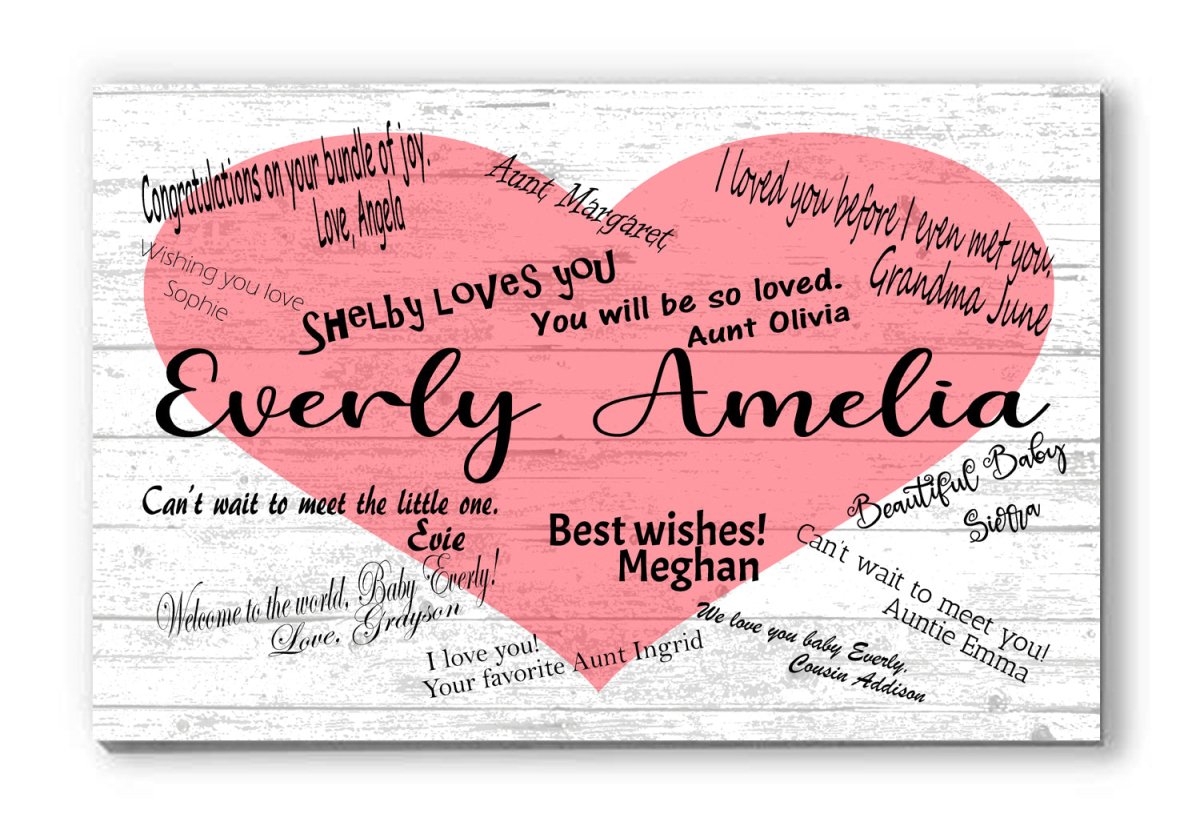 Congratulations on your bundle of joy.
Love, Angela
Aunt, Margaret,
I loved you before I even met you,
Grandma June
Wishing you love
Sophie
Shelby Loves you
You will be so loved.
Aunt Olivia
Everly Amelia
Can't wait to meet the little one.
Evie
Best wishes!
Meghan
Beautiful Baby
Sierra
Can't wait to meet you!
Auntie Emma
Welcome to the world, Baby Everly!
Love, Grayson
I love you!
Your favorite Aunt Ingrid
We love you baby Everly,
Cousin Addison